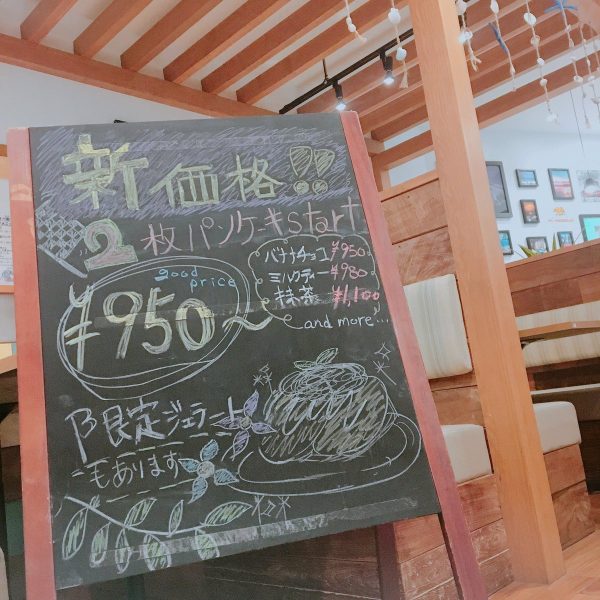 新価格!!
2枚パンケーキstart
good price
¥950〜
バナナチョコ ¥950
ミルクティー ¥980
抹茶 ¥1,100
and more...
限定ジェラート
もあります